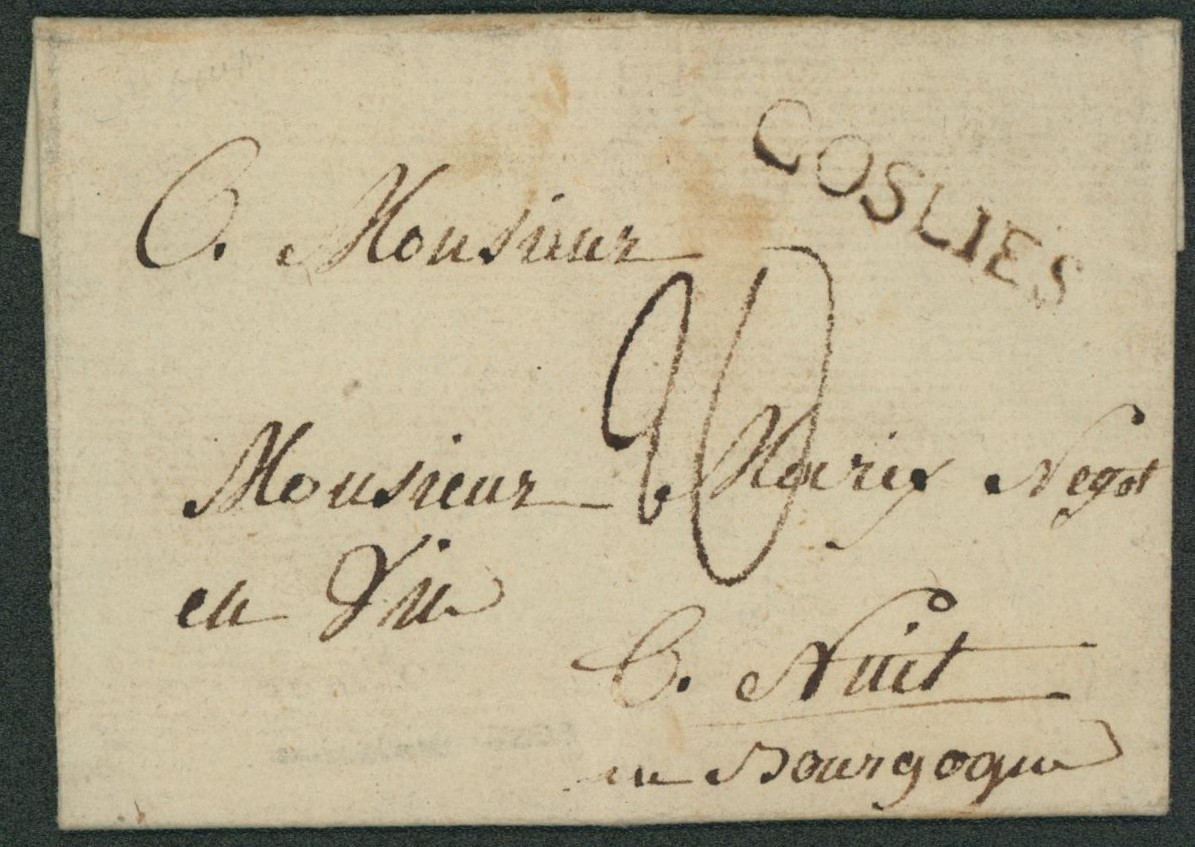 GOSLIES
A. Monsieur
20
Monsieur Marix Negot
en Vin
A. Nuit
en Bourgogne